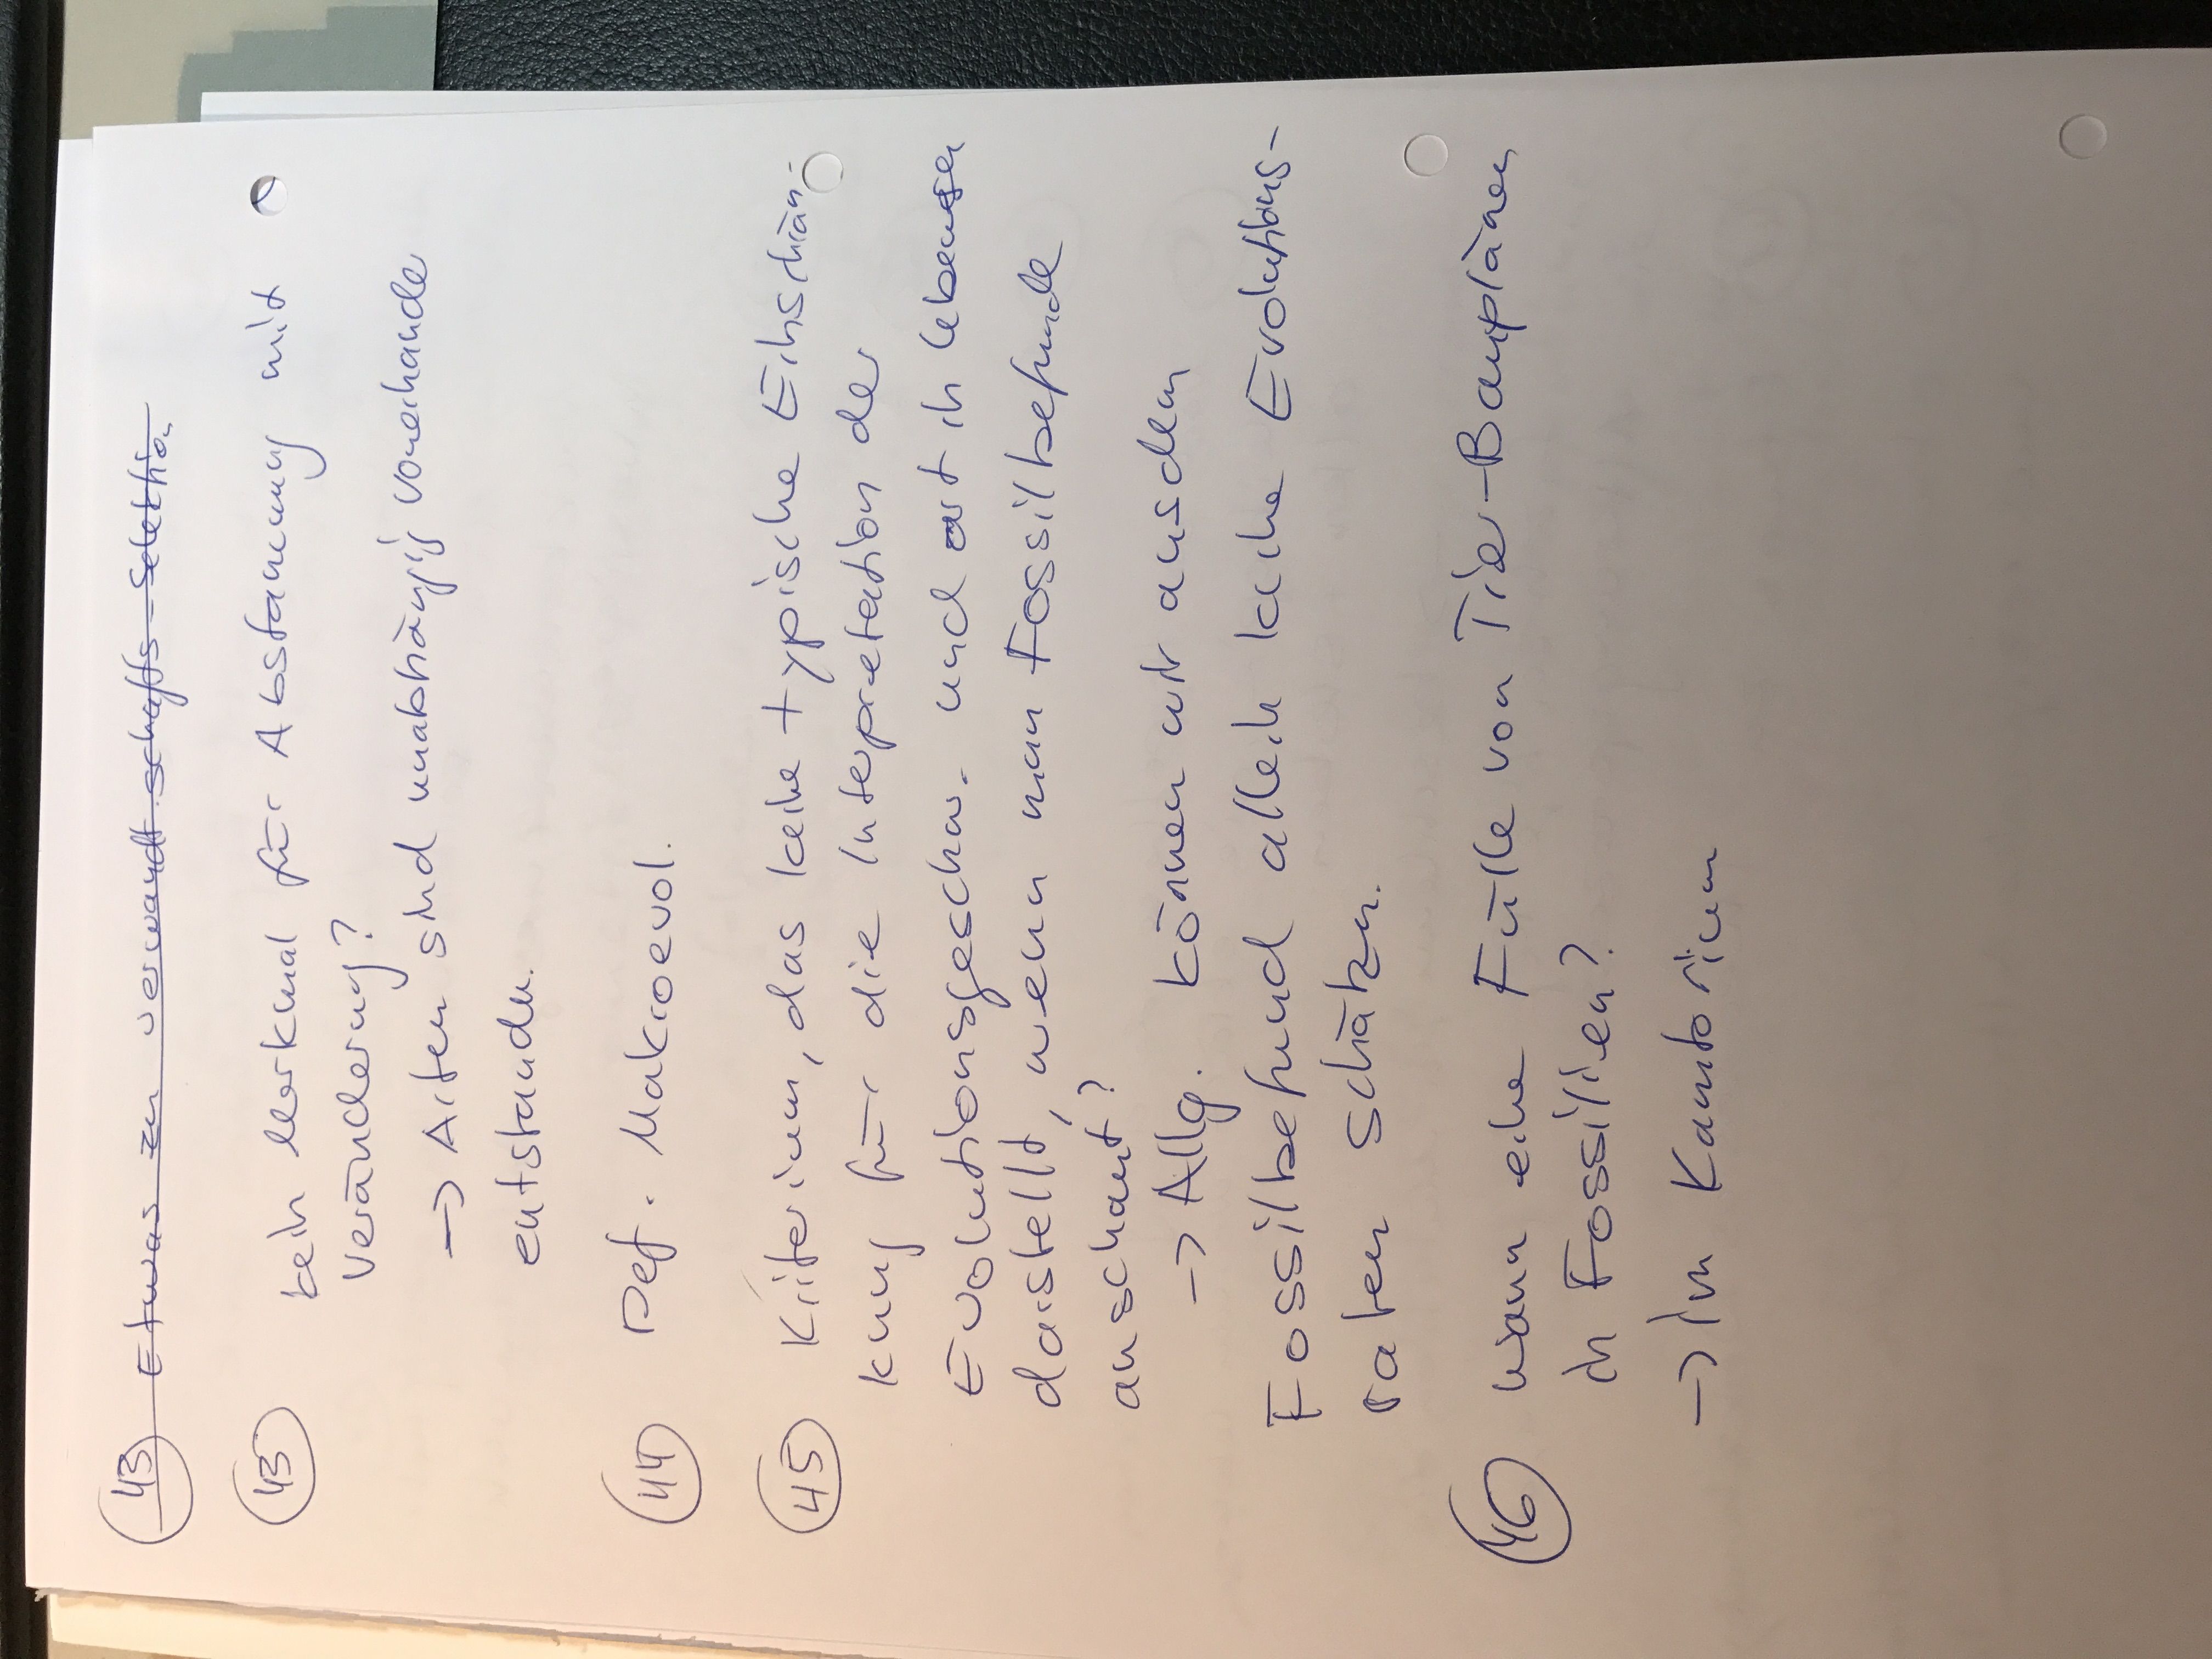 43 Etwas zu Verwandtschafts-Selektion
43 kein Merkmal für Abstammung mit
Veränderung?
→ Arten sind unabhängig voneinande
entstanden.
44 Def. Makroevol.
45 Kriterium, das keine typische Einschrän-
kung für die Interpretation der
Evolutionsgeschw. und art in
darstellt, wenn man Fossilbefunde
anschaut?
→ Allg. können wir aus dem
Fossilbefund allein keine Evolutions-
raten schätzen.
46 Wann eine Fülle von Tier-Bauplänen
in Fossilien?
→ im Kambrium